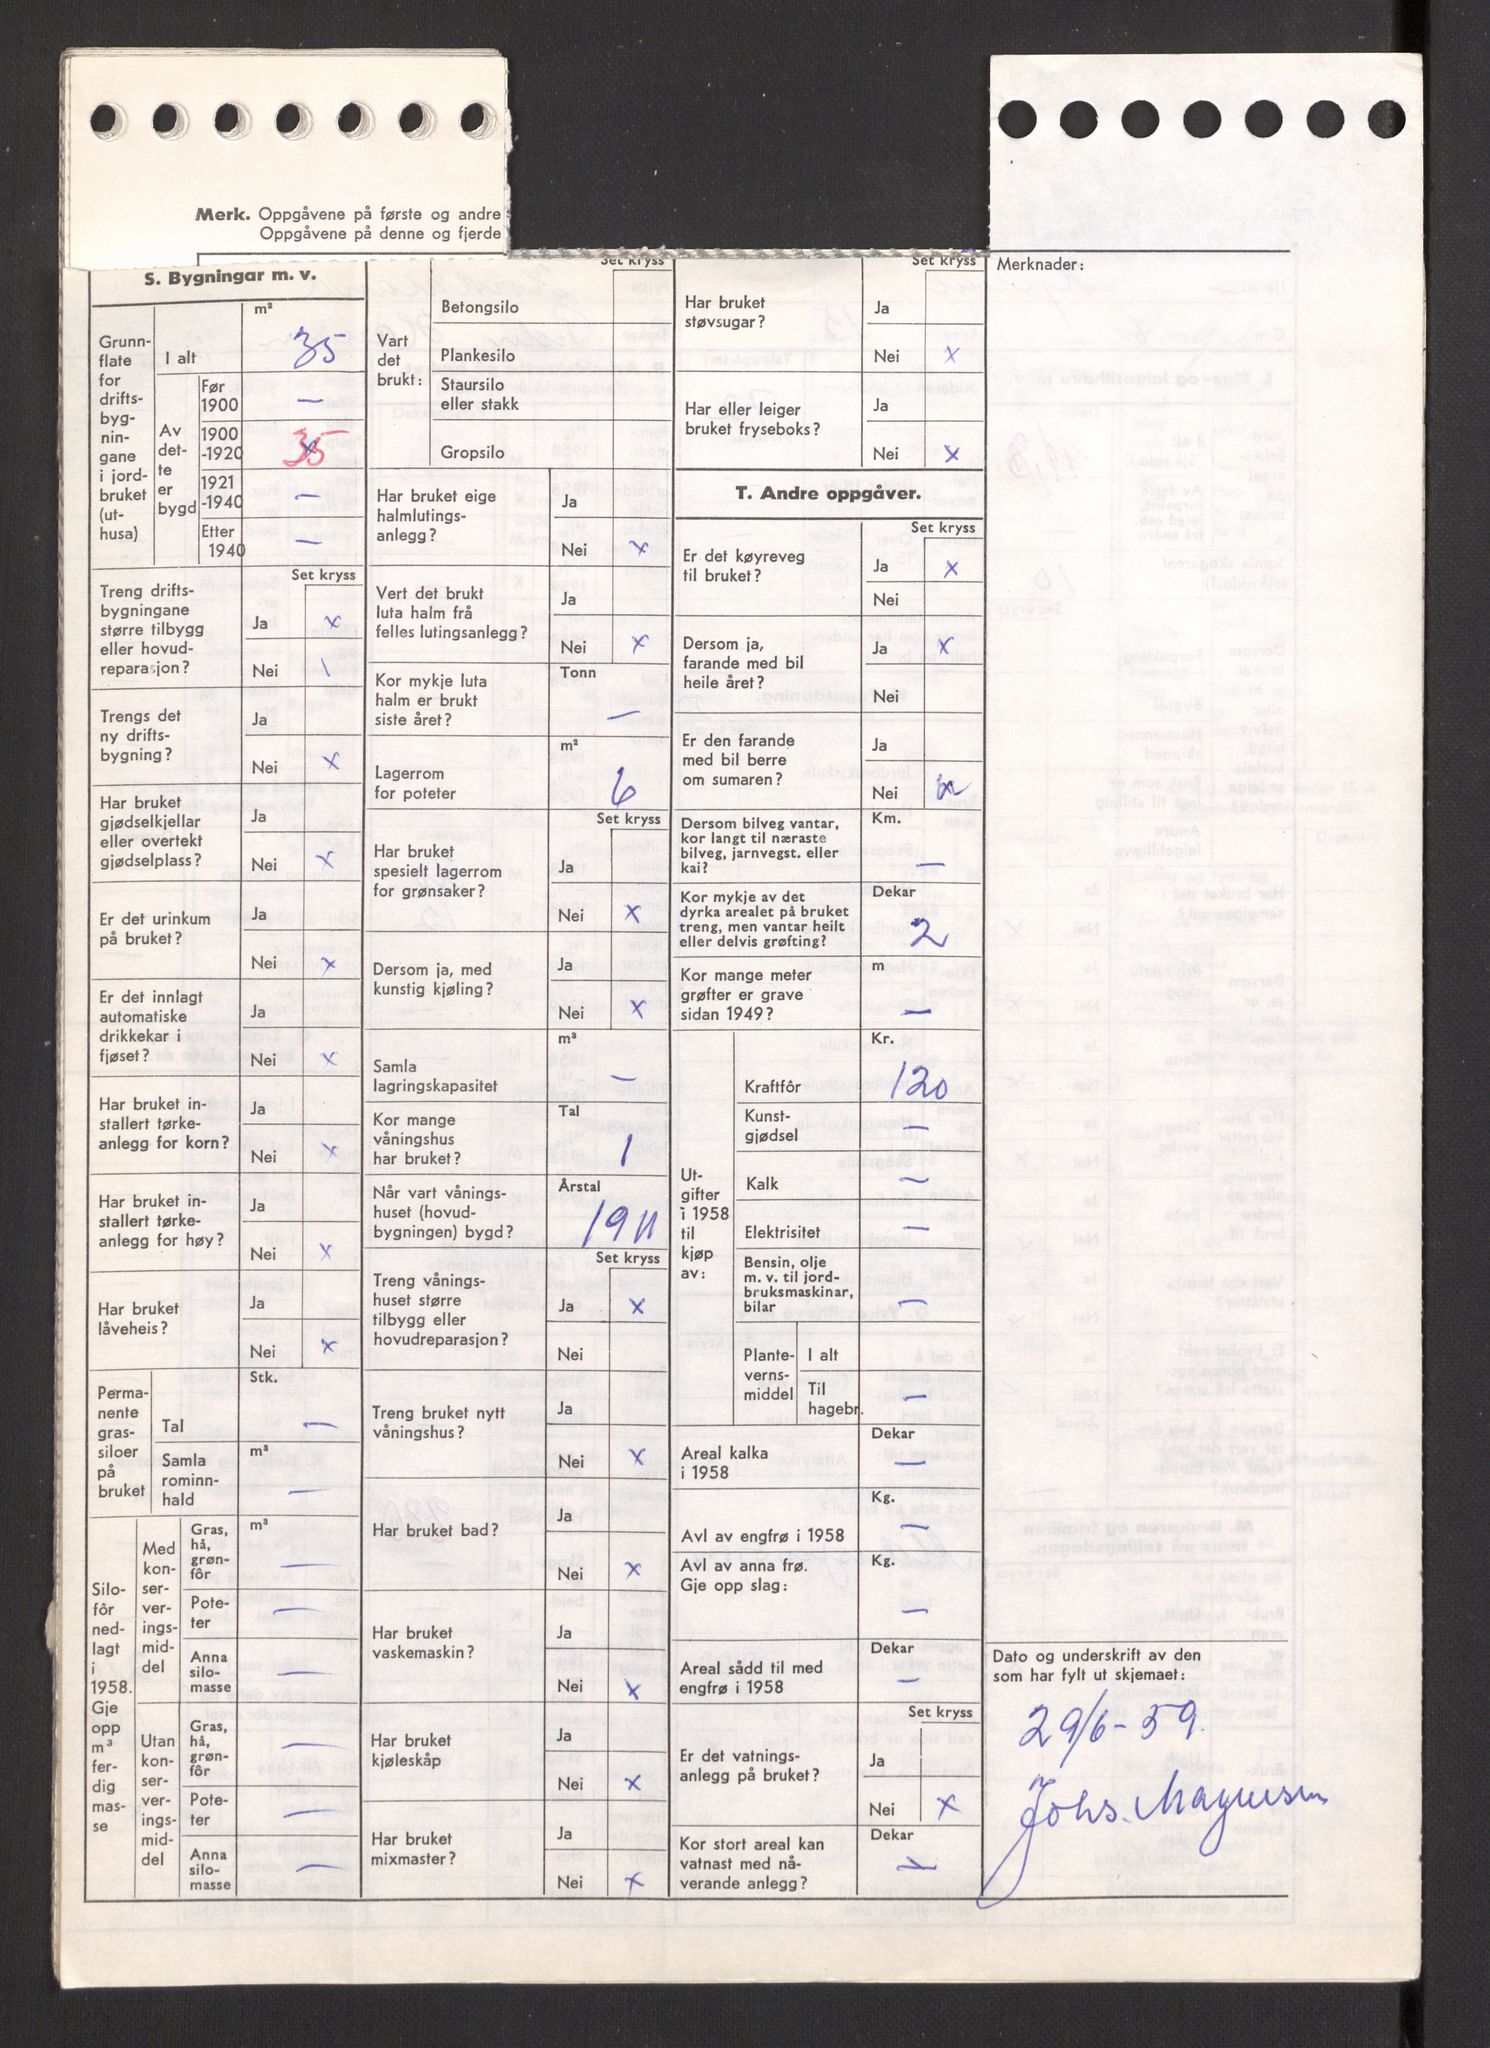 Merk. Oppgåvene på første og andre
Oppgåvene på denne og fjerde
S. Bygningar m. v.
m²
Grunn-
flate
for
drifts-
byg-
nin-
gane
i jord-
bruket
(ut-
husa)
I alt
35
Av
det-
te
er
bygd
Før
1900
—
1900
-1920
35
x
1921
-1940
—
Etter
1940
—
Set kryss
Treng drifts-
bygningane
større tilbygg
eller hovud-
reparasjon?
Ja x
Nei
Trengs det
ny drifts-
bygning?
Ja
Nei x
Har bruket
gjødselkjellar
eller overtekt
gjødselplass?
Ja
Nei x
Er det urinkum
på bruket?
Ja
Nei x
Er det innlagt
automatiske
drikkekar i
fjøset?
Ja
Nei x
Har bruket in-
stallert tørke-
anlegg for korn?
Ja
Nei x
Har bruket in-
stallert tørke-
anlegg for høy?
Ja
Nei x
Har bruket
låveheis?
Ja
Nei x
Perma-
nente
gras-
siloer
på
bruket
Stk.
Tal —
Samla
rominn-
hald
m³
—
Silo-
fôr
ned-
lagt
i
1958.
Gje
opp
m³
fer-
dig
mas-
se
Med
kon-
ser-
ver-
ings-
mid-
del
Gras,
hå,
grøn-
fôr
m³
—
Pote-
ter
—
Anna
silo-
masse
—
Utan
kon-
ser-
ver-
ings-
mid-
del
Gras,
hå,
grøn-
fôr
—
Pote-
ter
—
Anna
silo-
masse
—
Set kryss
Vart
det
brukt:
Betongsilo
Plankesilo
Staursilo
eller stakk
Gropsilo
Har bruket eige
halmlutings-
anlegg?
Ja
Nei x
Vert det brukt
luta halm frå
felles lutingsanlegg?
Ja
Nei x
Kor mykje luta
halm er brukt
siste året?
Tonn
—
Lagerrom
for poteter
m²
6
Set kryss
Har bruket
spesielt lagerrom
for grønsaker?
Ja
Nei x
Dersom ja, med
kunstig kjøling?
Ja
Nei x
Samla
lagringskapasitet
m³
—
Kor mange
våningshus
har bruket?
Tal
1
Når vart vånings-
huset (hovud-
bygningen) bygd?
Årstal
1911
Set kryss
Treng vånings-
huset større
tilbygg eller
hovudreparasjon?
Ja x
Nei
Treng bruket nytt
våningshus?
Ja
Nei x
Har bruket bad?
Ja
Nei x
Har bruket
vaskemaskin?
Ja
Nei x
Har bruket
kjøleskåp
Ja
Nei x
Har bruket
mixmaster?
Ja
Nei x
Set kryss
Har bruket
støvsugar?
Ja
Nei x
Har eller leiger
bruket fryseboks?
Ja
Nei x
T. Andre oppgåver.
Set kryss
Er det køyreveg
til bruket?
Ja x
Nei
Dersom ja,
farande med bil
heile året?
Ja x
Nei
Er den farande
med bil berre
om sumaren?
Ja
Nei x
Dersom bilveg vantar,
kor langt til næraste
bilveg, jarnvegst. eller
kai?
Km.
—
Kor mykje av det
dyrka arealet på bruket
treng, men vantar heilt
eller delvis grøfting?
Dekar
2
Kor mange meter
grøfter er grave
sidan 1949?
m
—
Ut-
gifter
i 1958
til
kjøp
av:
Kr.
Kraftfôr 120
Kunst-
gjødsel
—
Kalk —
Elektrisitet —
Bensin, olje
m. v. til jord-
bruksmaskinar,
bilar
—
Plante-
verns-
middel
I alt
Til
hagebr.
—
Areal kalka
i 1958
Dekar
—
Avl av engfrø i 1958
Kg.
—
Avl av anna frø.
Gje opp slag:
Kg.
—
Areal sådd til med
engfrø i 1958
Dekar
—
Set kryss
Er det vatnings-
anlegg på bruket?
Ja
Nei x
Kor stort areal kan
vatnast med nå-
verande anlegg?
Dekar
—
Merknader:
Dato og underskrift av den
som har fylt ut skjemaet:
29/6-59.
Johs. Magnusen